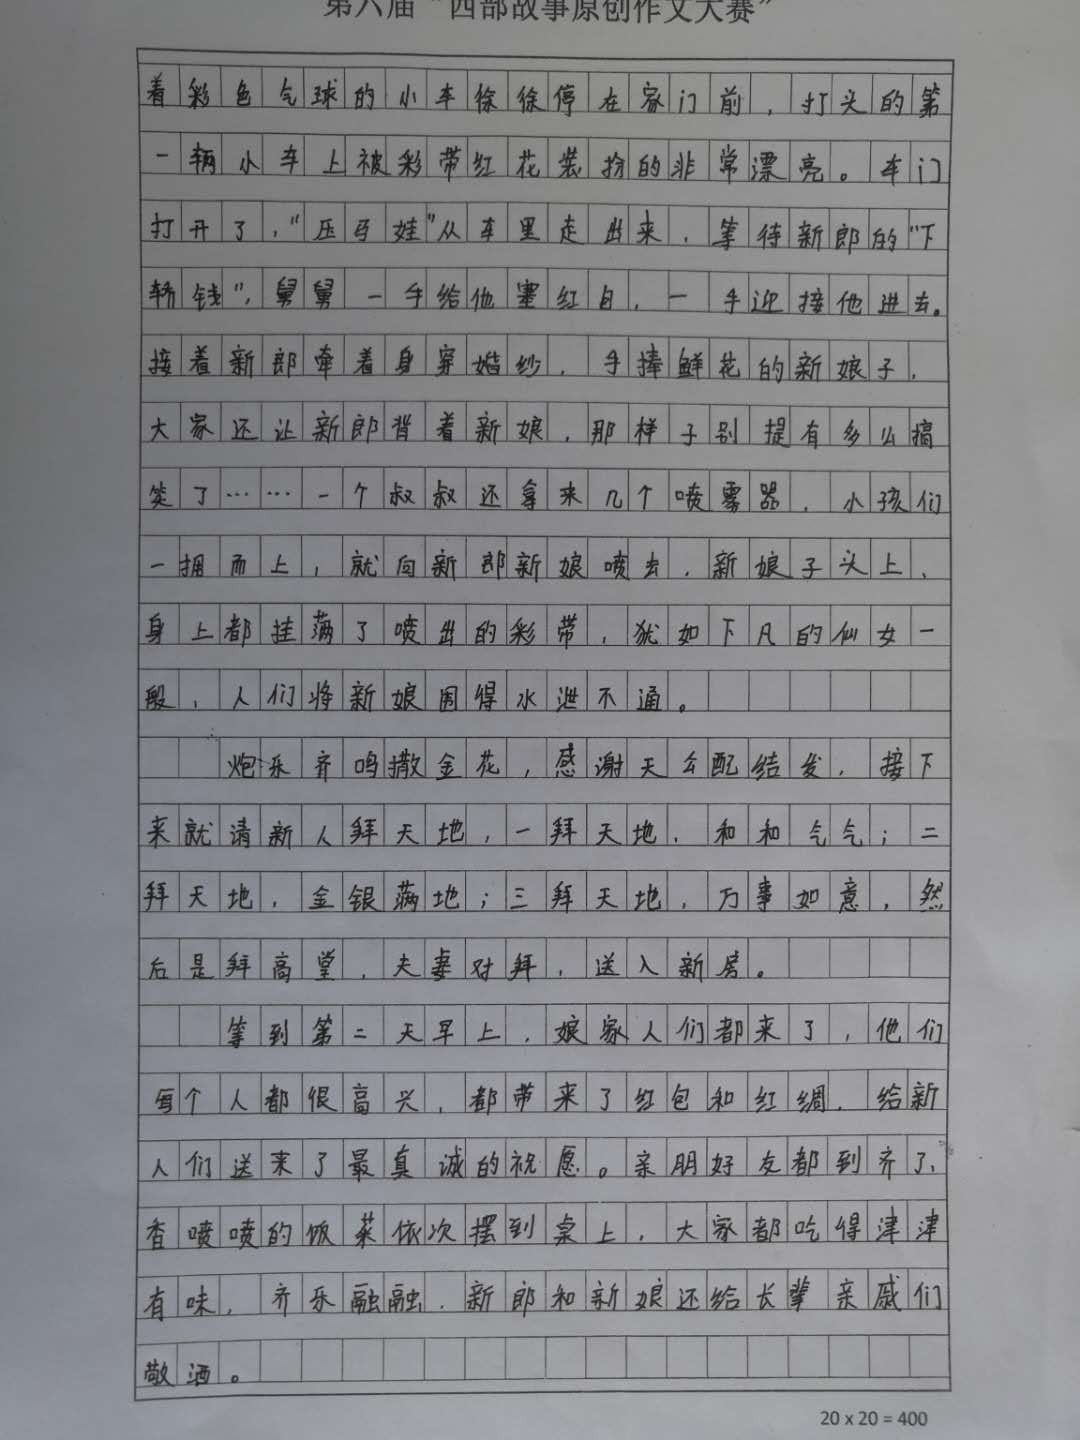 第六届“西部故事原创作文大赛”
着彩色气球的小车徐徐停在家门前，打头的第
一辆小车上被彩带红花装扮的非常漂亮。车门
打开了，“压马娃”从车里走出来，等待新郎的“下
轿钱”，舅舅一手给他塞红包，一手迎接他进去。
接着新郎牵着身穿婚纱，手捧鲜花的新娘子，
大家还让新郎背着新娘，那样子别提有多么搞
笑了……一个叔叔还拿来几个喷雾器，小孩们
一拥而上，就向新郎新娘喷去，新娘子头上、
身上都挂满了喷出的彩带，犹如下凡的仙女一
般，人们将新娘围得水泄不通。
炮乐齐鸣撒金花，感谢天公配结发，接下
来就请新人拜天地，一拜天地，和和气气；二
拜天地，金银满地；三拜天地，万事如意，然
后是拜高堂，夫妻对拜，送入新房。
等到第二天早上，娘家人们都来了，他们
每个人都很高兴，都带来了红包和红绸，给新
人们送来了最真诚的祝愿。亲朋好友都到齐了、
香喷喷的饭菜依次摆到桌上，大家都吃得津津
有味，齐乐融融，新郎和新娘还给长辈亲戚们
敬酒。
20 x 20 = 400